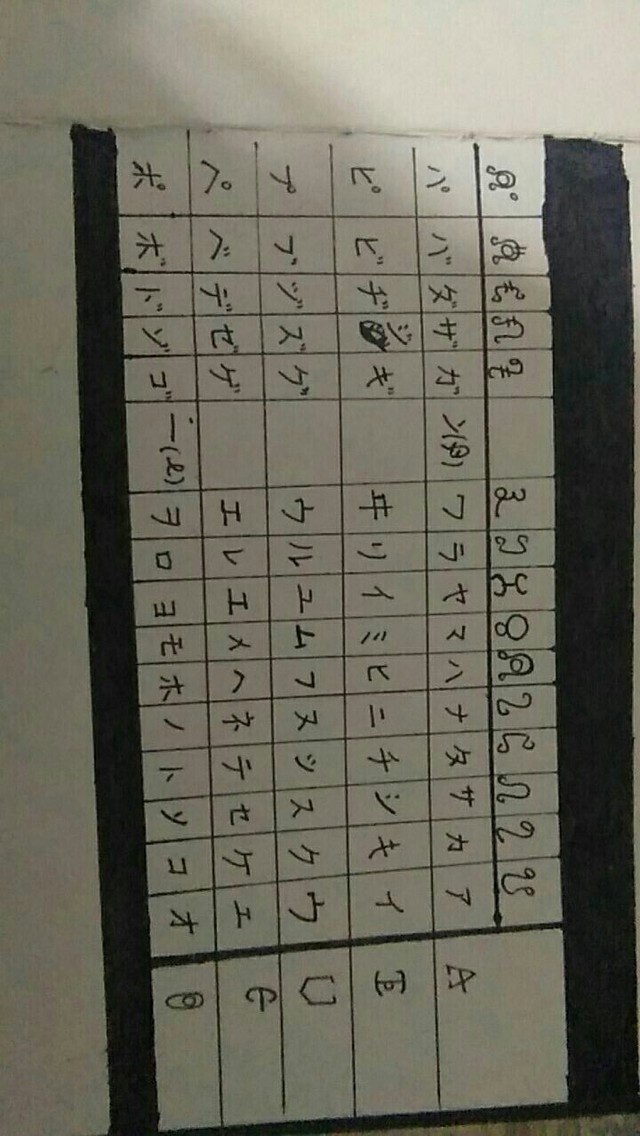 パ バ ダ ザ ガ ン ワ ラ ヤ マ ハ ナ タ サ カ ア A
ピ ビ ヂ ジ ギ ヰ リ イ ミ ヒ ニ チ シ キ イ
プ ブ ヅ ズ グ ウ ル ユ ム フ ヌ ツ ス ク ウ
ペ ベ デ ゼ ゲ エ レ エ メ ヘ ネ テ セ ケ エ
ポ ボ ド ゾ ゴ ー ヲ ロ ヨ モ ホ ノ ト ソ コ オ